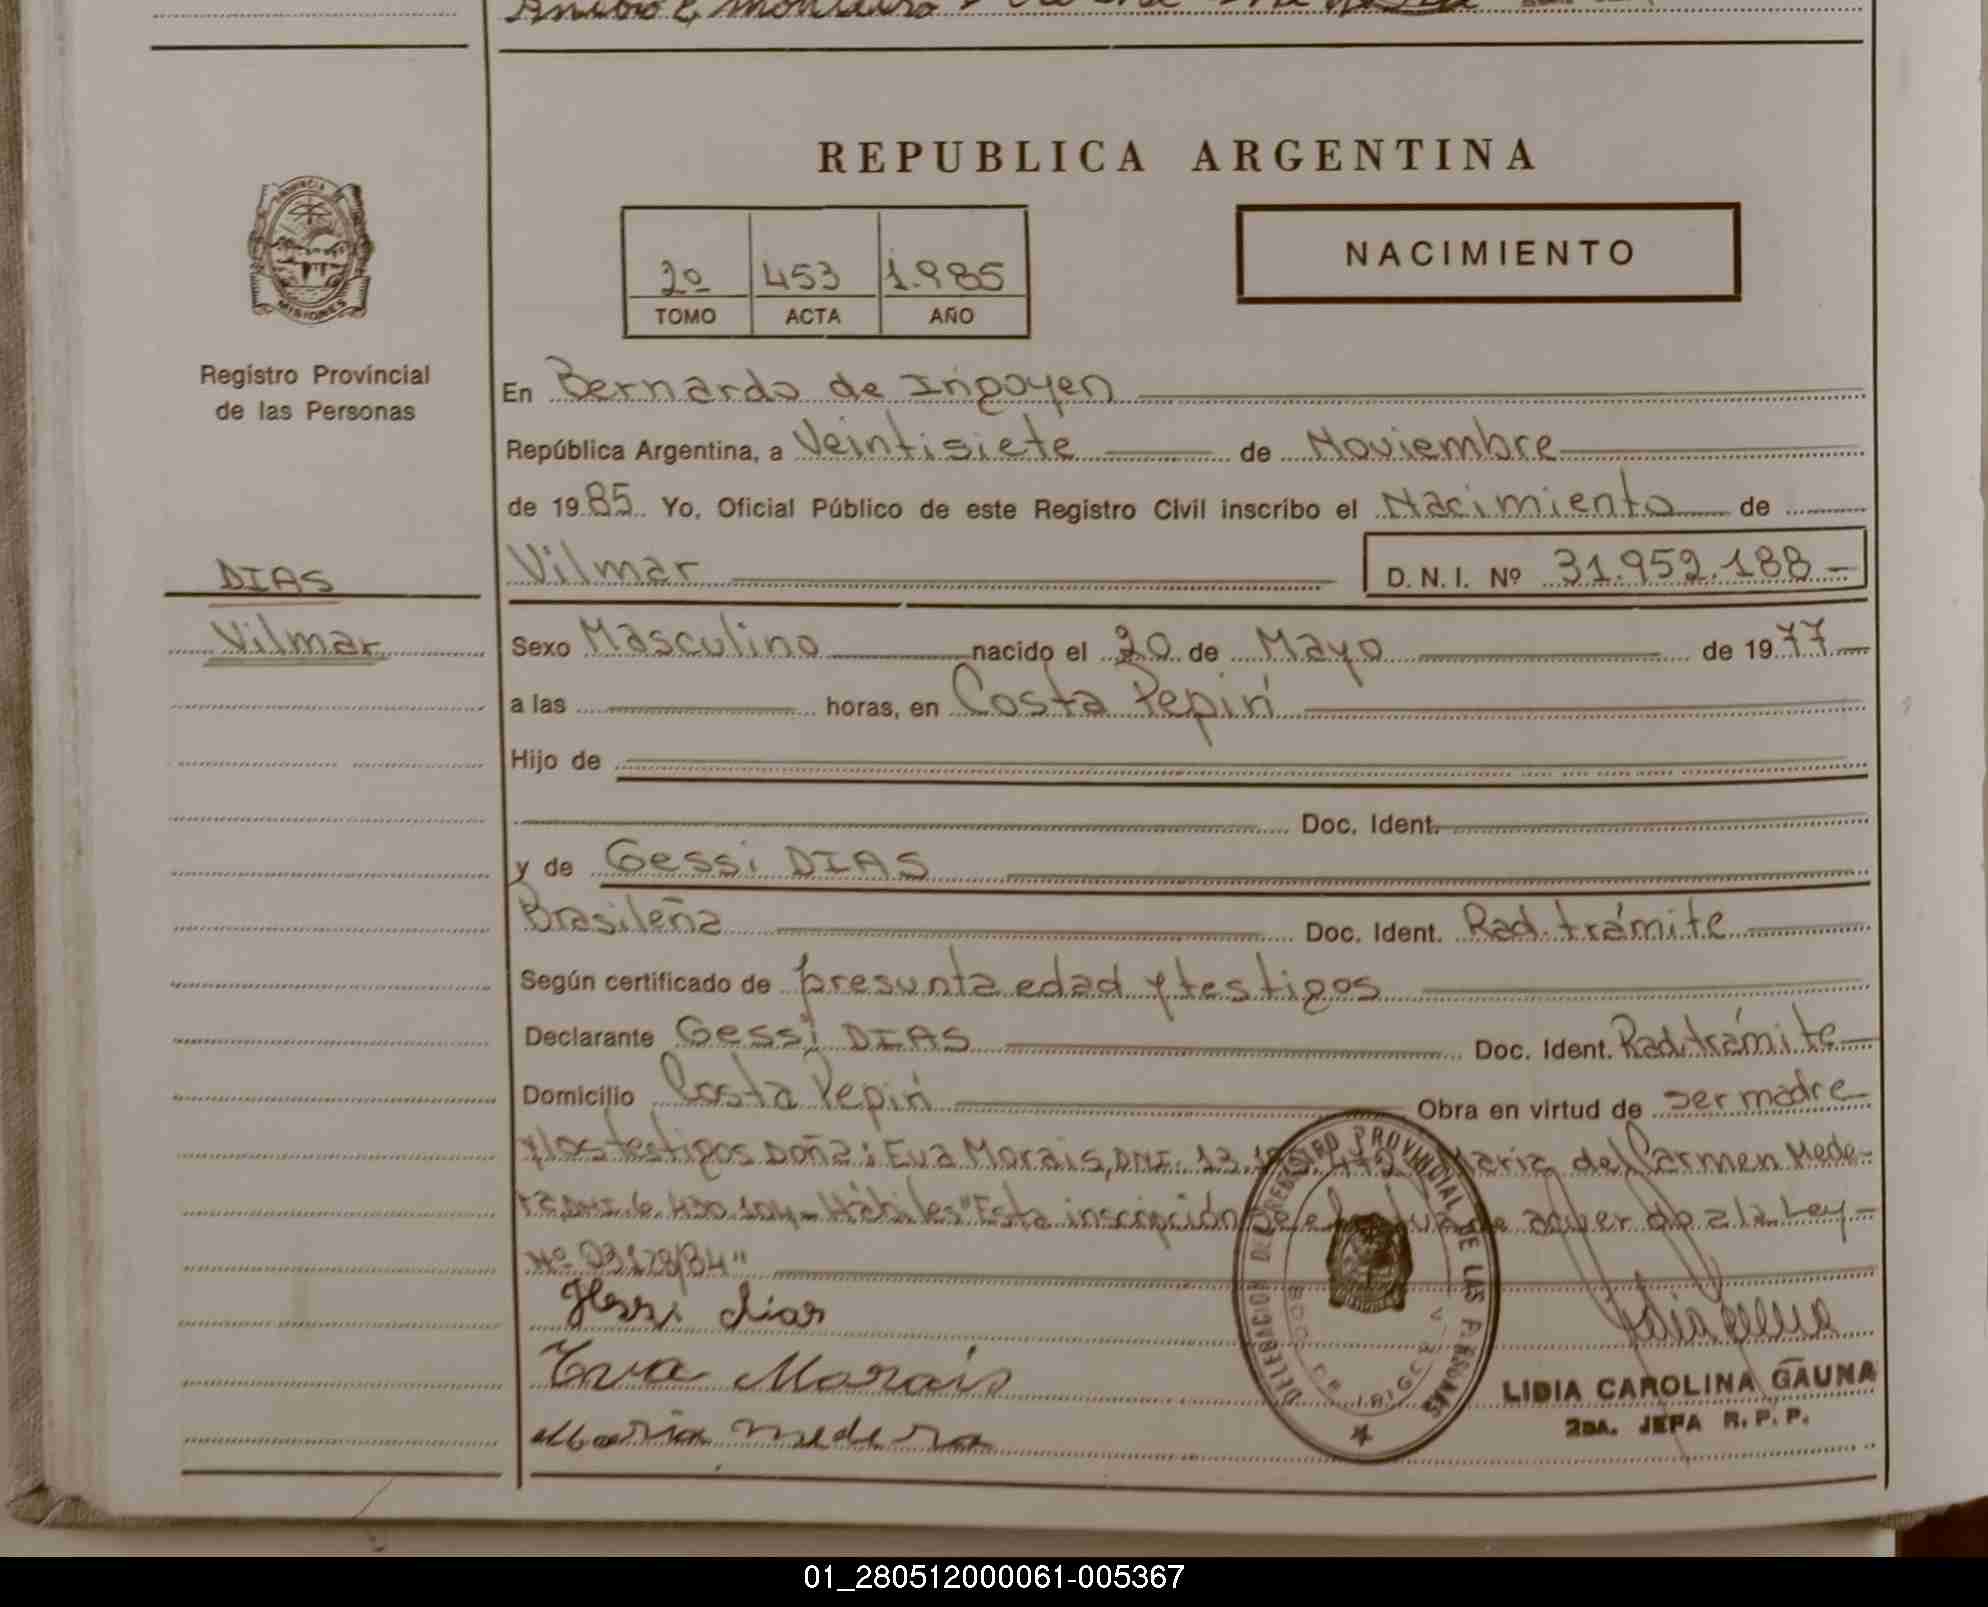 REPUBLICA ARGENTINA
PROVINCIA
MISIONES
Registro Provincial
de las Personas
2º 453 1.985
TOMO ACTA AÑO
NACIMIENTO
En Bernardo de Irigoyen
República Argentina, a Veintisiete de Noviembre
de 1985 Yo, Oficial Público de este Registro Civil inscribo el Nacimiento de
DIAS
Vilmar
Vilmar D. N. I. Nº 31.952.188
Sexo Masculino nacido el 20 de Mayo de 1977
a las horas, en Costa Pepirí
Hijo de
Doc. Ident.
y de Gessi DIAS
Brasileña Doc. Ident. Rad. trámite
Según certificado de presunta edad y testigos
Declarante Gessi DIAS Doc. Ident. Rad. trámite
Domicilio Costa Pepirí Obra en virtud de ser madre
y los testigos Doña: Eva Morais, DNI. 13. María del Carmen Mede-
ra, DNI. 6. 430.104 - Hábiles "Esta inscripción se de a la Ley
Nº 03128/84"
Gessi dias
Eva Morais
Maria medera
DELEGACION DEL REGISTRO PROVINCIAL DE LAS PERSONAS
BDO. DE IRIGOYEN
LIDIA CAROLINA GAUNA
2DA. JEFA R. P. P.
01_280512000061-005367